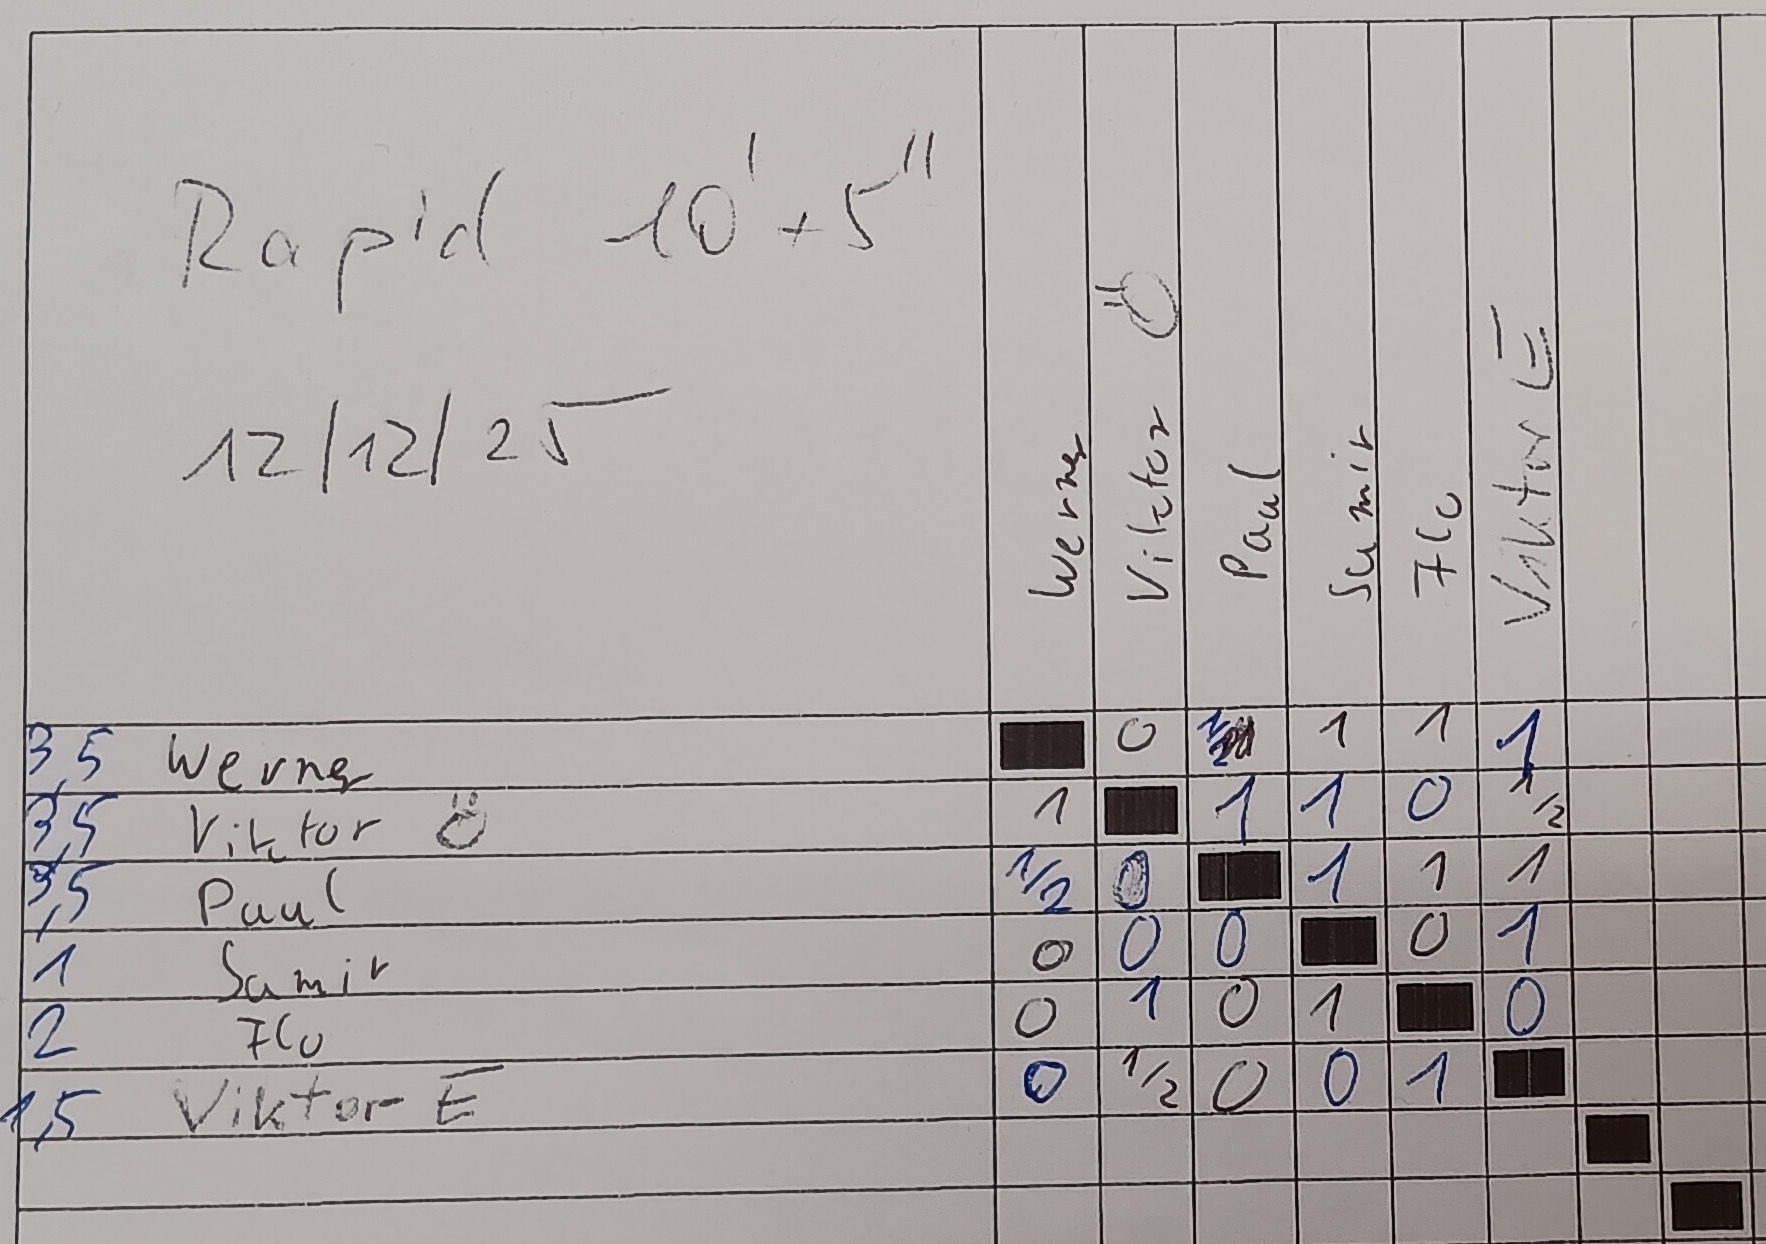 Rapid 10' + 5"
12/12/25
Werner Viktor Ö Paul Samir Flo Viktor E
3,5 Werner 0 1/2 1 1 1
3,5 Viktor Ö 1 1 1 0 1/2
3,5 Paul 1/2 0 1 1 1
1 Samir 0 0 0 0 1
2 Flo 0 1 0 1 0
1,5 Viktor E 0 1/2 0 0 1